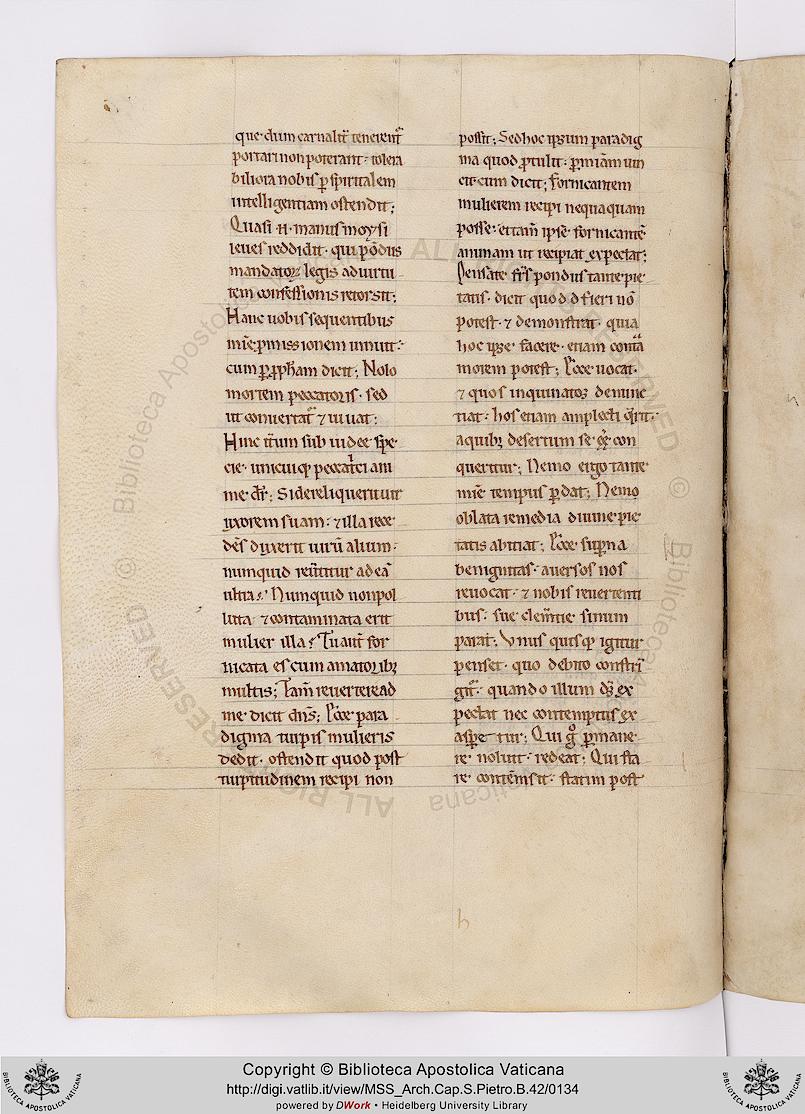 que dum carnalit̃ tenerent̃
portari non poterant · tolera
biliora nobis p̱ spiritalem
intelligentiam ostendit;
Quasi · n̄ · manus moysi
leues reddidit · qui põdus
mandatoꝝ legis ad uirtu
tem confessionis retorsit;
Hanc uobis sequentibus
mīe ꝓmissionem innuit ·
cum ꝑ ꝓpham dicit; Nolo
mortem peccatoris · sed
ut conuertat̃ ⁊ uiuat:
Hinc it̃um sub iudee spe
cie · unicuiq; peccatrici ani
me dr̃; Si dereliquerit uir
uxorem suam · ⁊ illa rece
dẽs duxerit uirũ alium ·
nunquid reũtitur ad eã
ultra? Nunquid non pol
luta ⁊ contaminata erit
mulier illa? Tu aut̃ for
nicata es cum amatoribꝫ
multis; Tam̃ reuertere ad
me dicit dñs; Ecce para
digma turpis mulieris
dedit · ostendit quod post
turpitudinem recipi non
possit; Sed hoc ipsum paradig
ma quod ꝓtulit · ꝑ mīam uin
cit · cum dicit; fornicantem
mulierem recipi nequaquam
posse · et tam̃ ipse fornicantẽ
animam ut recipiat expectat;
Pensate fr̃s pondus tante pie
tatis · dicit quod dfieri nõ
potest · ⁊ demonstrat · quia
hoc ipse facere · etiam cont̃a
morem potest; Ecce uocat ·
⁊ quos inquinatos denunc
tiat · hos etiam amplecti q̃rit ·
a quibꝫ desertum se ẽẽ con
queritur; Nemo ergo tante
mīe tempus ꝑdat; Nemo
oblata remedia diuine pie
tatis abitiat; Ecce sup̱na
benignitas · auersos nos
reuocat · ⁊ nobis reuertenti
bus · sue clem̃tie sinum
parat; Vnus quisq; igitur
penset · quo debito constrĩ
git̃ · quando illum dš̃ ex
pectat nec contemptus ex
asp̱etur; Qui g̊ ꝑmane
re noluit · redeat; Qui sta
re contẽmsit · statim post
h
Copyright © Biblioteca Apostolica Vaticana
http://digi.vatlib.it/view/MSS_Arch.Cap.S.Pietro.B.42/0134
powered by DWork · Heidelberg University Library